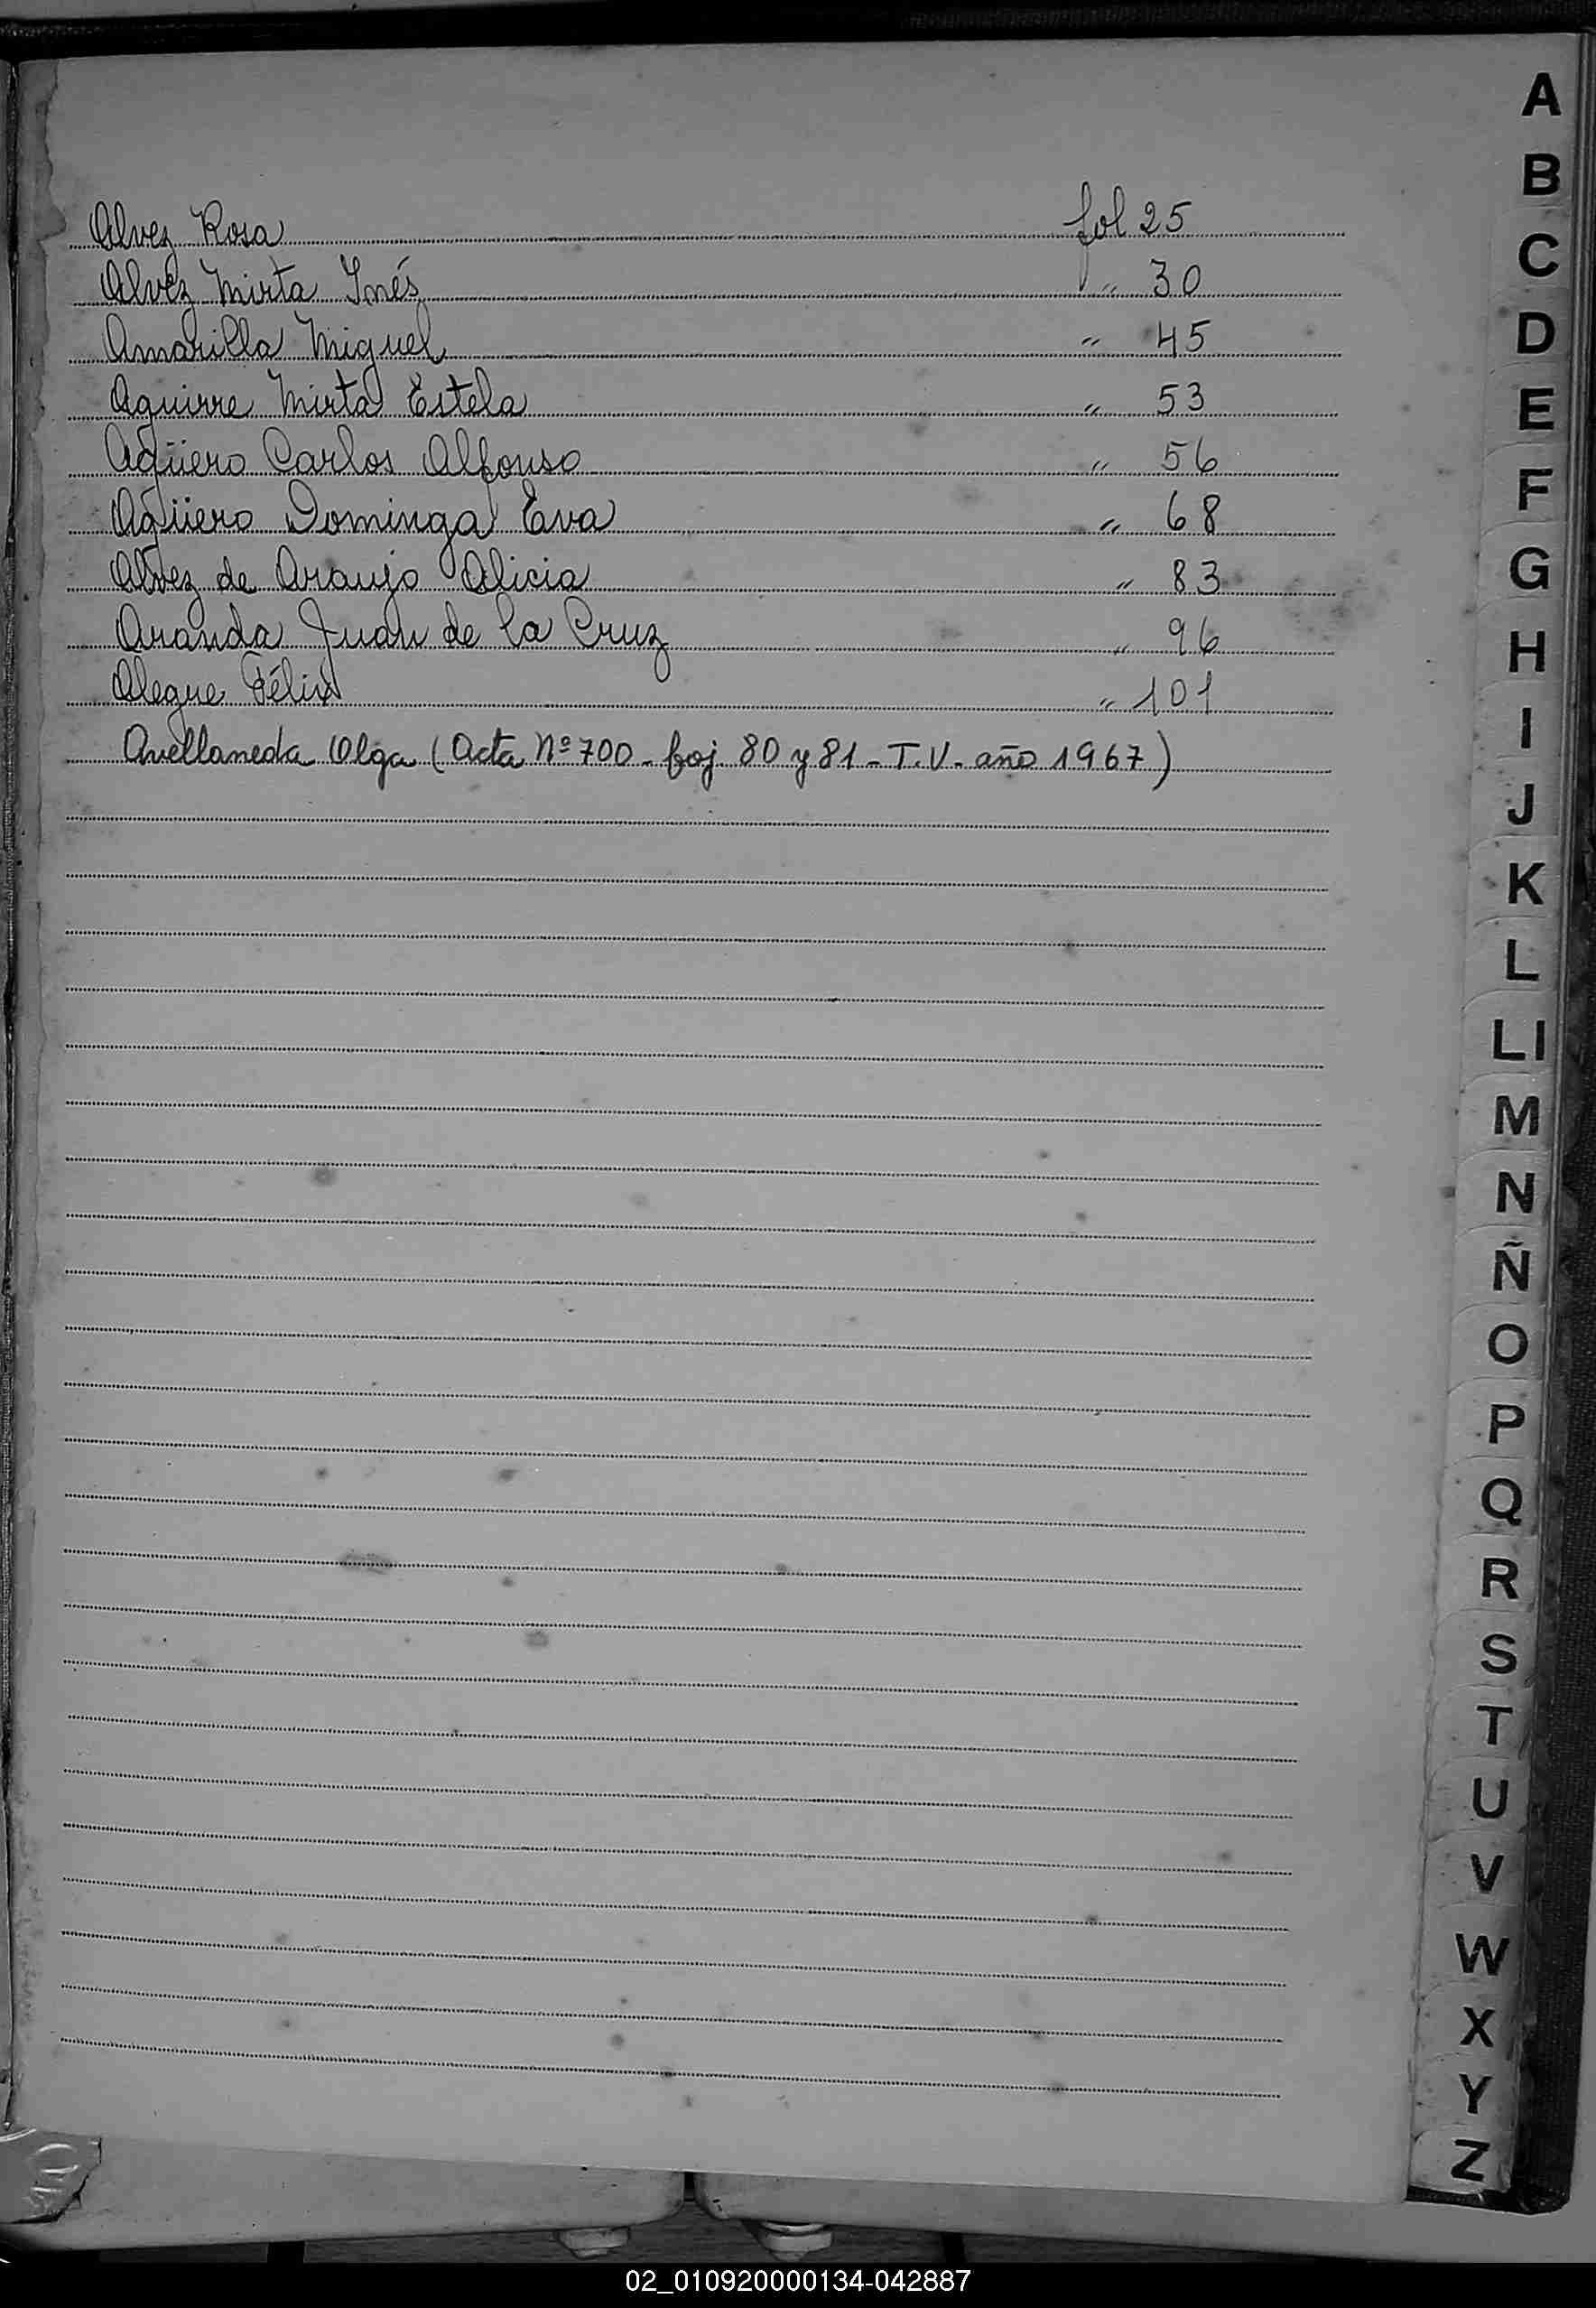 Alvez Rosa fol 25
Alvez Mirta Inés " 30
Amarilla Miguel " 45
Aguirre Mirta Estela " 53
Agüero Carlos Alfonso " 56
Agüero Dominga Eva " 68
Alvez de Araujo Alicia " 83
Aranda Juan de la Cruz " 96
Alegre Félix " 101
Avellaneda Olga (Acta Nº 700 - foj. 80 y 81 - T. V. año 1967)
A
B
C
D
E
F
G
H
I
J
K
L
Ll
M
N
Ñ
O
P
Q
R
S
T
U
V
W
X
Y
Z
02_010920000134-042887